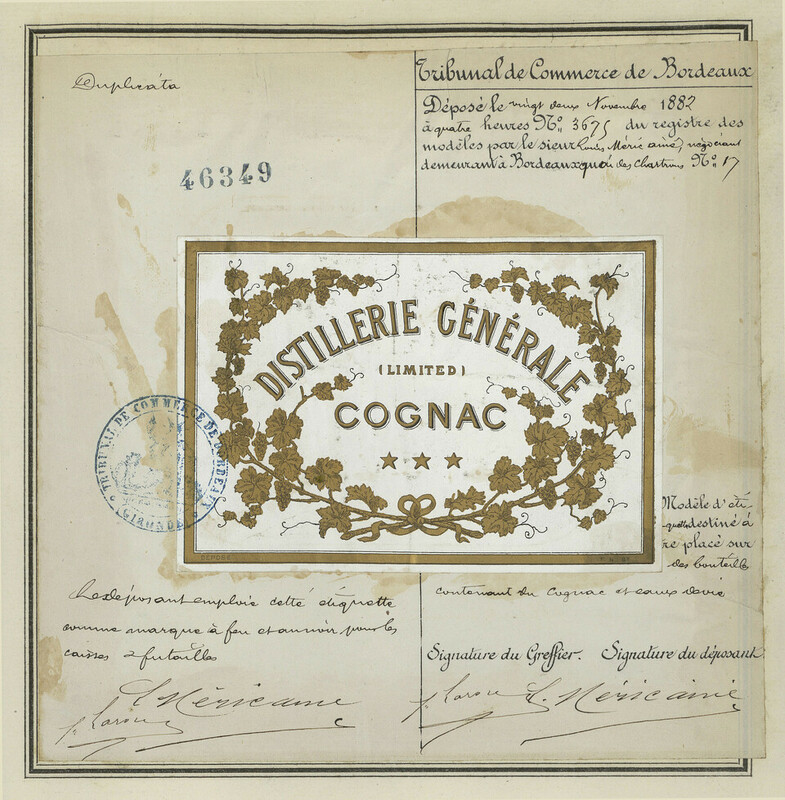 Duplicata
46349
Tribunal de Commerce de Bordeaux
Déposé le vingt deux Novembre 1882
à quatre heures Nº 3675 du registre des
modèles par le sieur Louis Méric ainé, négociant
demeurant à Bordeaux quai des Chartrons Nº 17
DISTILLERIE GÉNÉRALE
(LIMITED)
COGNAC
DÉPOSÉ
TRIBUNAL DE COMMERCE DE BORDEAUX
GIRONDE
Modèle d'éti-
quette destiné à
re placé sur
des bouteilles
contenant du Cognac et eaux de vie
Le déposant emploie cette étiquette
comme marque à feu et au noir pour les
caisses & futailles
Signature du Greffier. Signature du déposant.
L. Méric ainé
L. Méric ainé